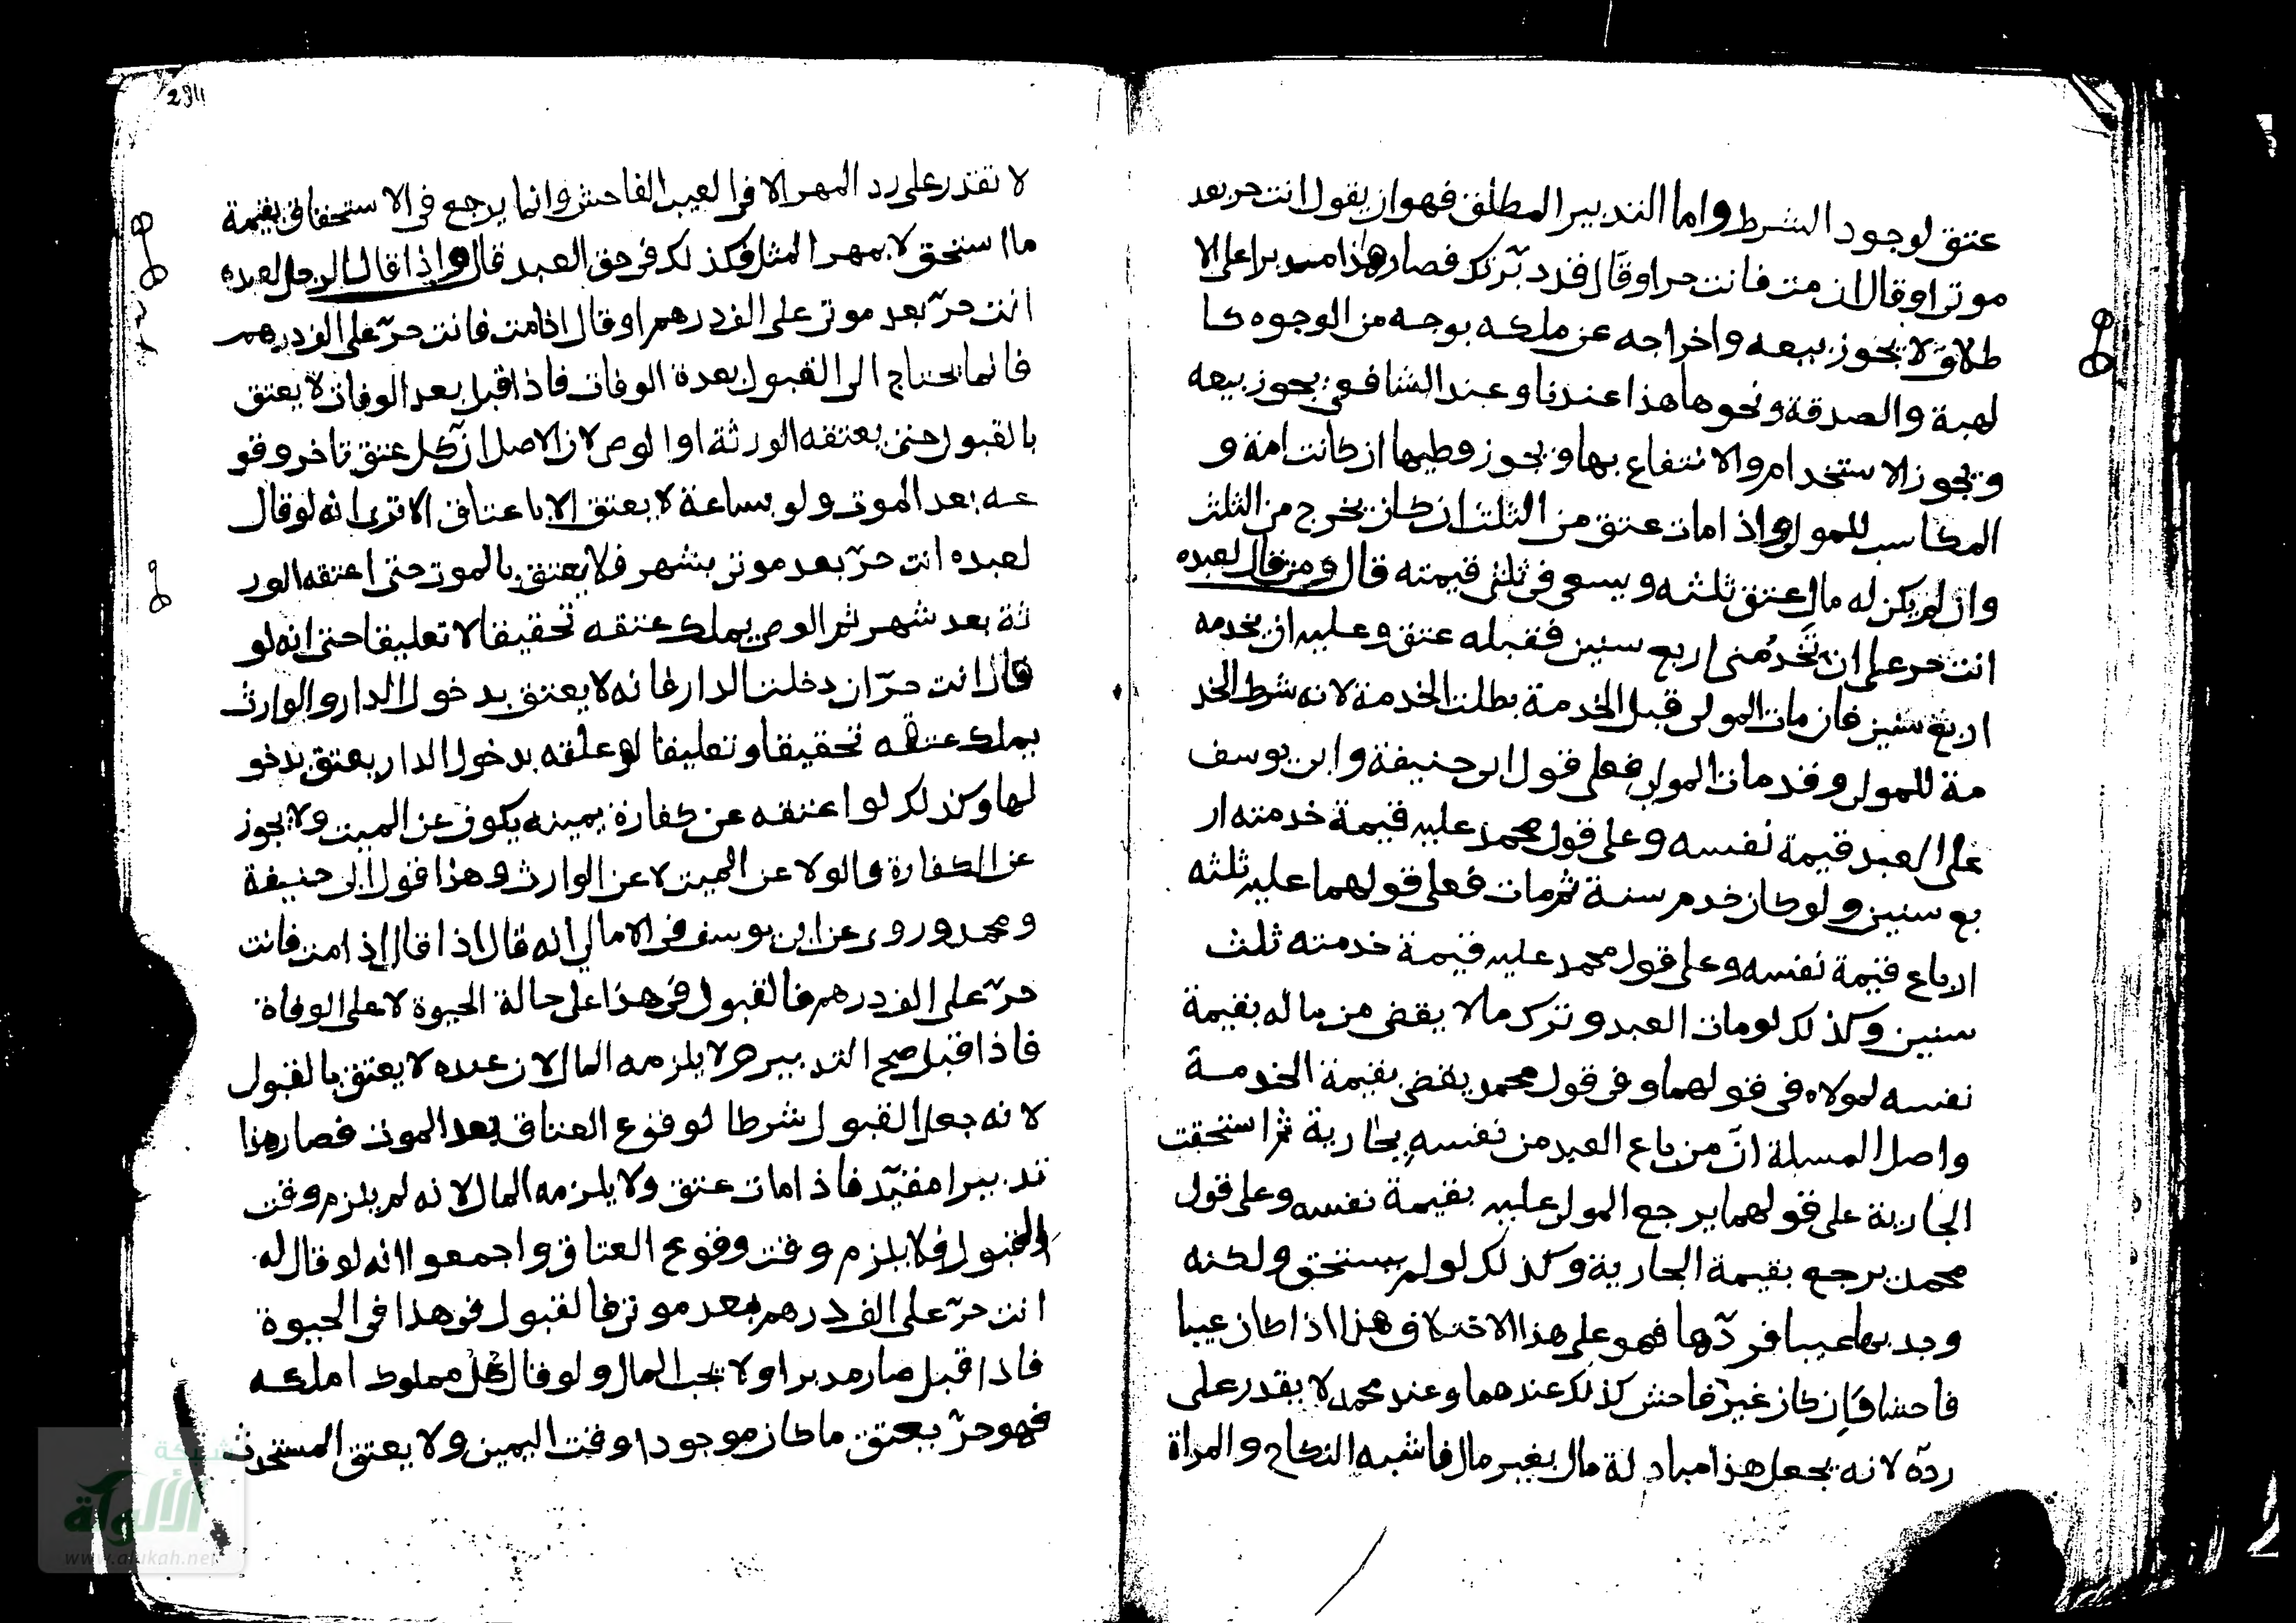 عتق لوجود الشرط واما التدبير المطلق فهو ان يقول انت حر بعد
موتى او قال ان مت فانت حر او قال قد دبّرتك فصار هذا مدبرا على الا
طلاق لا يجوز بيعه واخراجه عن ملكه بوجه من الوجوه كا
لهبة والصدقة ونحوها هذا عندنا وعند الشافعى يجوز بيعه
ويجوز الاستخدام والانتفاع بها ويجوز وطيها ان كانت امة و
المكاسب للمولى واذا مات عتق من الثلث ان كان يخرج من الثلث
وان لم يكن له مال عتق ثلثه ويسعى فى ثلثى قيمته قال ومن قال لعبده
انت حر على ان تخدمنى اربع سنين فقبله عتق وعليه ان يخدمه
اربع سنين فان مات المولى قبل الخدمة بطلت الخدمة لانه شرط الخد
مة للمولى وقد مات المولى فعلى قول ابى حنيفة وابى يوسف
على العبد قيمة نفسه وعلى قول محمد عليه قيمة خدمته ار
بع سنين ولو كان خدم سنة ثم مات فعلى قولهما عليه ثلثه
ارباع قيمة نفسه وعلى قول محمد عليه قيمة خدمته ثلث
سنين وكذلك لو مات العبد وترك مالا يقضى من ماله بقيمة
نفسه لمولاه فى قولهما وفى قول محمد يقضى بقيمة الخدمة
واصل المسلة انّ من باع العبد من نفسه بجارية ثم استحقت
الجارية على قولهما يرجع المولى عليه بقيمة نفسه وعلى قول
محمد يرجع بقيمة الجارية وكذلك لو لم يستحق ولكنه
وجد بها عيبا فردّها فهو على هذا الاختلاف هذا اذا كان عيبا
فاحشا فان كان غير فاحش كذلك عندهما وعند محمد لا يقدر على
ردّه لانه يجعل هذا مبادلة مال بغير مال فاشبه النكاح والمراة
294
لا تقدر على رد المهر الا فى العيب الفاحش وانما يرجع فى الاستحقاق بقيمة
ما استحق لا بمهر المثل فكذلك فى حق العبد قال واذا قال الرجل لعبده
انت حرّ بعد موتى على الف درهم او قال اذا مت فانت حرّ على الف درهم
فانما يحتاج الى القبول بعدة الوفات فاذا قبل بعد الوفات لا يعتق
بالقبول حتى يعتقه الورثة او الوصى لان الاصل انّ كل عتق تاخر وقو
عه بعد الموت ولو بساعة لا يعتق الا باعتاق الا ترى انه لو قال
لعبده انت حرّ بعد موتى بشهر فلا يعتق بالموت حتى اعتقه الور
ثة بعد شهر ثم الوصى يملك عتقه تحقيقا لا تعليقا حتى انه لو
قال انت حرّ ان دخلت الدار فانه لا يعتق بدخول الدار والوارث
يملك عتقه تحقيقا وتعليقا لو علقه بدخول الدار يعتق بدخو
لها وكذلك لو اعتقه عن كفارة يمينه يكون عن الميت ولا يجوز
عن الكفارة والولا عن الميت لا عن الوارث وهذا قول ابى حنيفة
ومحمد وروى عن ابى يوسف فى الامالى انه قال اذا قال اذا مت فانت
حرّ على الف درهم فالقبول فى هذا على حالة الحيوة لا على الوفاة
فاذا قبل صح التدبير ولا يلزمه المال لان عنده لا يعتق بالقبول
لانه جعل القبول شرطا لوقوع العتاق بعد الموت فصار هذا
تدبيرا مقيّد فاذا مات عتق ولا يلزمه المال لانه لم يلزم وقت
القبول فلا يلزم وقت وقوع العتاق واجمعوا انه لو قال له
انت حرّ على الف درهم بعد موتى فالقبول فى هذا فى الحيوة
فاذا قبل صار مدبرا ولا يجب المال ولو قال كل مملوك املكه
فهو حرّ يعتق ما كان موجودا وقت اليمين ولا يعتق المستحدث
شبكة
الألوكة
www.alukah.net